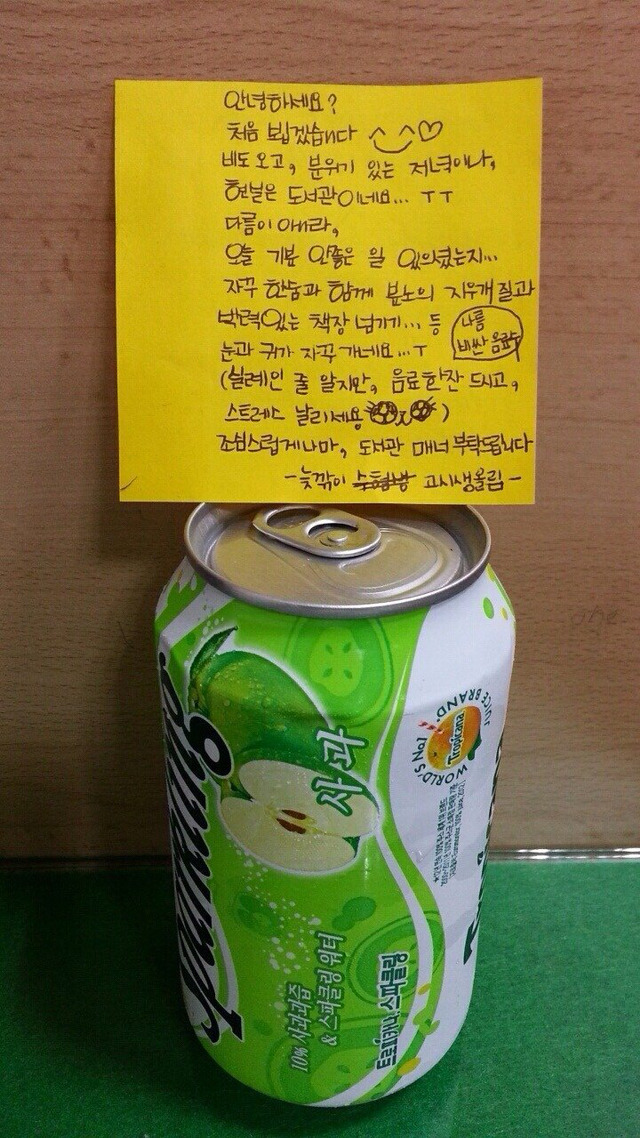 안녕하세요?
처음 뵙겠습니다 ^_^♡
비도 오고, 분위기 있는 저녁이나,
현실은 도서관이네요... ㅜㅜ
다름이 아니라,
오늘 기분 안좋은 일 있으셨는지...
자꾸 한숨과 함께 분노의 지우개질과
박력있는 책장 넘기기... 등
나름
비싼 음료
눈과 귀가 자꾸 가네요...ㅜ
(실례인 줄 알지만, 음료한잔 드시고,
스트레스 날리세요 )
조심스럽게나마, 도서관 매너 부탁드립니다
-늦깎이 고시생올림-
Sparkling
사과
WORLD'S No.1 JUICE BRAND.
Tropicana
10% 사과과즙
& 스파클링 워터
트로피카나 스파클링